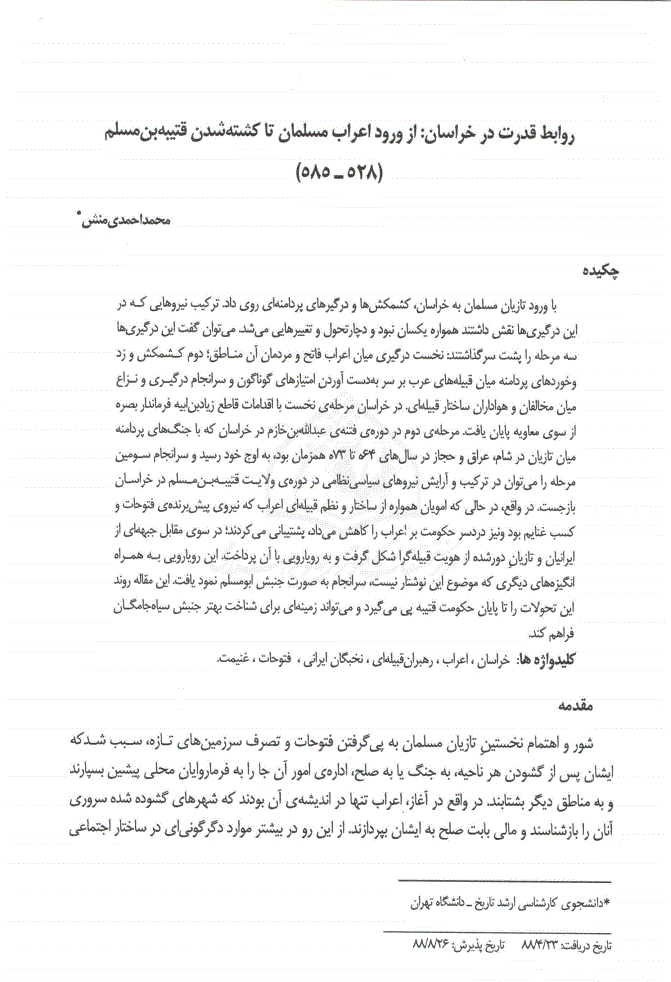 روابط قدرت در خراسان: از ورود اعراب مسلمان تا کشته‌شدن قتیبه‌بن‌مسلم
(۵۲۸ ـ ۵۸۵)
محمداحمدی‌منش*
چکیده
با ورود تازیان مسلمان به خراسان، کشمکش‌ها و درگیرهای پردامنه‌ای روی داد. ترکیب نیروهایی که در
این درگیری‌ها نقش داشتند همواره یکسان نبود و دچارتحول و تغییرهایی می‌شد. می‌توان گفت این درگیری‌ها
سه مرحله را پشت سرگذاشتند: نخست درگیری میان اعراب فاتح و مردمان آن مناطق؛ دوم کشمکش و زد
وخوردهای پردامنه میان قبیله‌های عرب بر سر به‌دست آوردن امتیازهای گوناگون و سرانجام درگیری و نزاع
میان مخالفان و هواداران ساختار قبیله‌ای. در خراسان مرحله‌ی نخست با اقدامات قاطع زیادبن‌ابیه فرماندار بصره
از سوی معاویه پایان یافت. مرحله‌ی دوم در دوره‌ی فتنه‌ی عبدالله‌بن‌خازم در خراسان که با جنگ‌های پردامنه
میان تازیان در شام، عراق و حجاز در سال‌های ۵۶۴ تا ۵۷۳ همزمان بود، به اوج خود رسید و سرانجام سومین
مرحله را می‌توان در ترکیب و آرایش نیروهای سیاسی‌نظامی در دوره‌ی ولایت قتیبه‌بن‌مسلم در خراسان
بازجست. در واقع، در حالی که امویان همواره از ساختار و نظم قبیله‌ای اعراب که نیروی پیش‌برنده‌ی فتوحات و
کسب غنایم بود ونیز دردسر حکومت بر اعراب را کاهش می‌داد، پشتیبانی می‌کردند؛ در سوی مقابل جبهه‌ای از
ایرانیان و تازیان دورشده از هویت قبیله‌گرا شکل گرفت و به رویارویی با آن پرداخت. این رویارویی به همراه
انگیزه‌های دیگری که موضوع این نوشتار نیست، سرانجام به صورت جنبش ابومسلم نمود یافت. این مقاله روند
این تحولات را تا پایان حکومت قتیبه پی می‌گیرد و می‌تواند زمینه‌ای برای شناخت بهتر جنبش سیاه‌جامگان
فراهم کند.
کلیدواژه ها: خراسان ، اعراب ، رهبران‌قبیله‌ای ، نخبگان ایرانی ، فتوحات ، غنیمت.
مقدمه
شور و اهتمام نخستینِ تازیان مسلمان به پی‌گرفتن فتوحات و تصرف سرزمین‌های تازه، سبب شدکه
ایشان پس از گشودن هر ناحیه، به جنگ یا به صلح، اداره‌ی امور آن جا را به فرمارو‌ایان محلی پیشین بسپارند
و به مناطق دیگر بشتابند. در واقع در آغاز، اعراب تنها در اندیشه‌ی آن بودند که شهرهای گشوده شده سروری
آنان را بازشناسند و مالی بابت صلح به ایشان بپردازند. از این رو در بیشتر موارد دگرگونی‌ای در ساختار اجتماعی
*دانشجوی کارشناسی ارشد تاریخ ـ دانشگاه تهران
تاریخ دریافت: ۸۸/۴/۲۳ تاریخ پذیرش: ۸۸/۸/۲۶